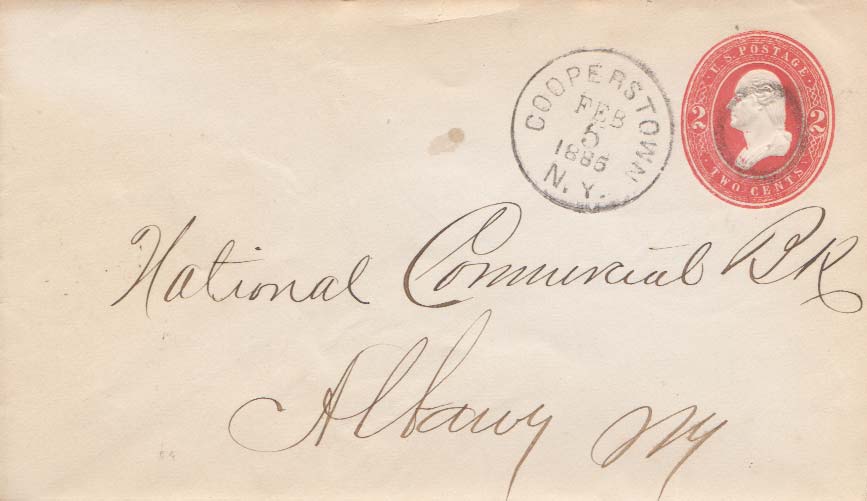 COOPERSTOWN
FEB
5
1886
N.Y.
U.S. POSTAGE
2 2
TWO CENTS
National Commercial Bk
Albany NY